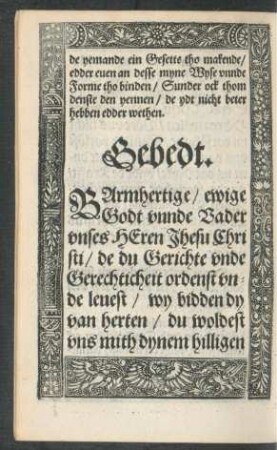 de yemande ein Gesette tho makende/
edder euen an desse myne Wyse vnnde
Forme tho binden / Sunder ock thom
denste den yennen / de ydt nicht beter
hebben edder wethen.
Gebedt.
BArmhertige / ewige
Godt vnnde Vader
vnses HEren Jhesu Chri
sti / de du Gerichte vnde
Gerechticheit ordenst vn=
de leuest / wy bidden dy
van herten / du woldest
vns mith dynem hilligen